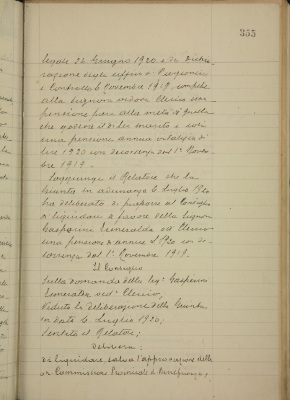 355
legale 24 Giugno 1920 e da Dichia-
razione degli uffici di Ragioneria
e Controllo 6 Novembre 1919, compete
alla Signora vedova Clerico una
pensione pari alla metà di quella
che godeva il di lei marito e così
una pensione annua vitalizia di
lire 1920 con decorrenza dal 1° Novem-
bre 1919.
Soggiunge il Relatore che la
Giunta in adunanza 6 Luglio 1920
ha deliberato di proporre al Consiglio
di liquidare a favore della Signora
Gasparini Esmeralda ved. Clerico
una pensione di annue £ 1920 con de-
correnza dal 1° Novembre 1919.
Il Consiglio
Sulla domanda della Sig.ª Gasparini
Esmeralda ved.ª Clerico;
Veduta la deliberazione della Giunta
in data 6 Luglio 1920;
Sentito il Relatore;
Delibera:
di liquidare, salva l'approvazione della
Commissione Provinciale di Beneficenza,